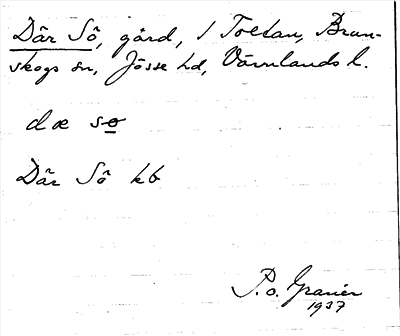 Där Sö, gård, i Toltan, Brun-
skogs sn, Jösse hd, Värmlands l.
dæ so
Där Sö kb
P.o. Granér
1937